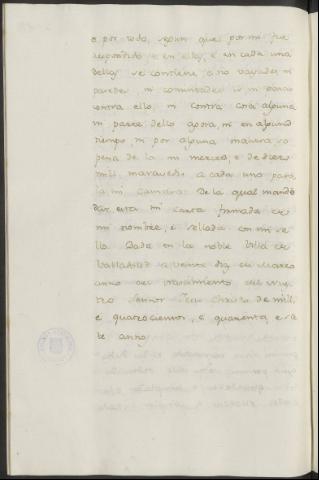 e por todo, segun que por mi fue
respondido e en ellas, e en cada una
dellas se contiene, e no vayades, ni
pasedes, ni consintades ir ni pasar
contra ello, ni contra cosa alguna
ni parte dello agora, ni en algund
tiempo, ni por alguna manera so
pena de la mi merced, e de diez
mil maravedis a cada uno para
la mi Camara. De la qual mandé
dar esta mi carta firmada de
mi nombre, e sellada con mi se
llo. Dada en la noble Villa de
Valladolid a veinte dias de Marzo
anno del nascimiento del Nues
tro Sennor Jesu Christo de mil
e quatrocientos, e quarenta e sie
te annos